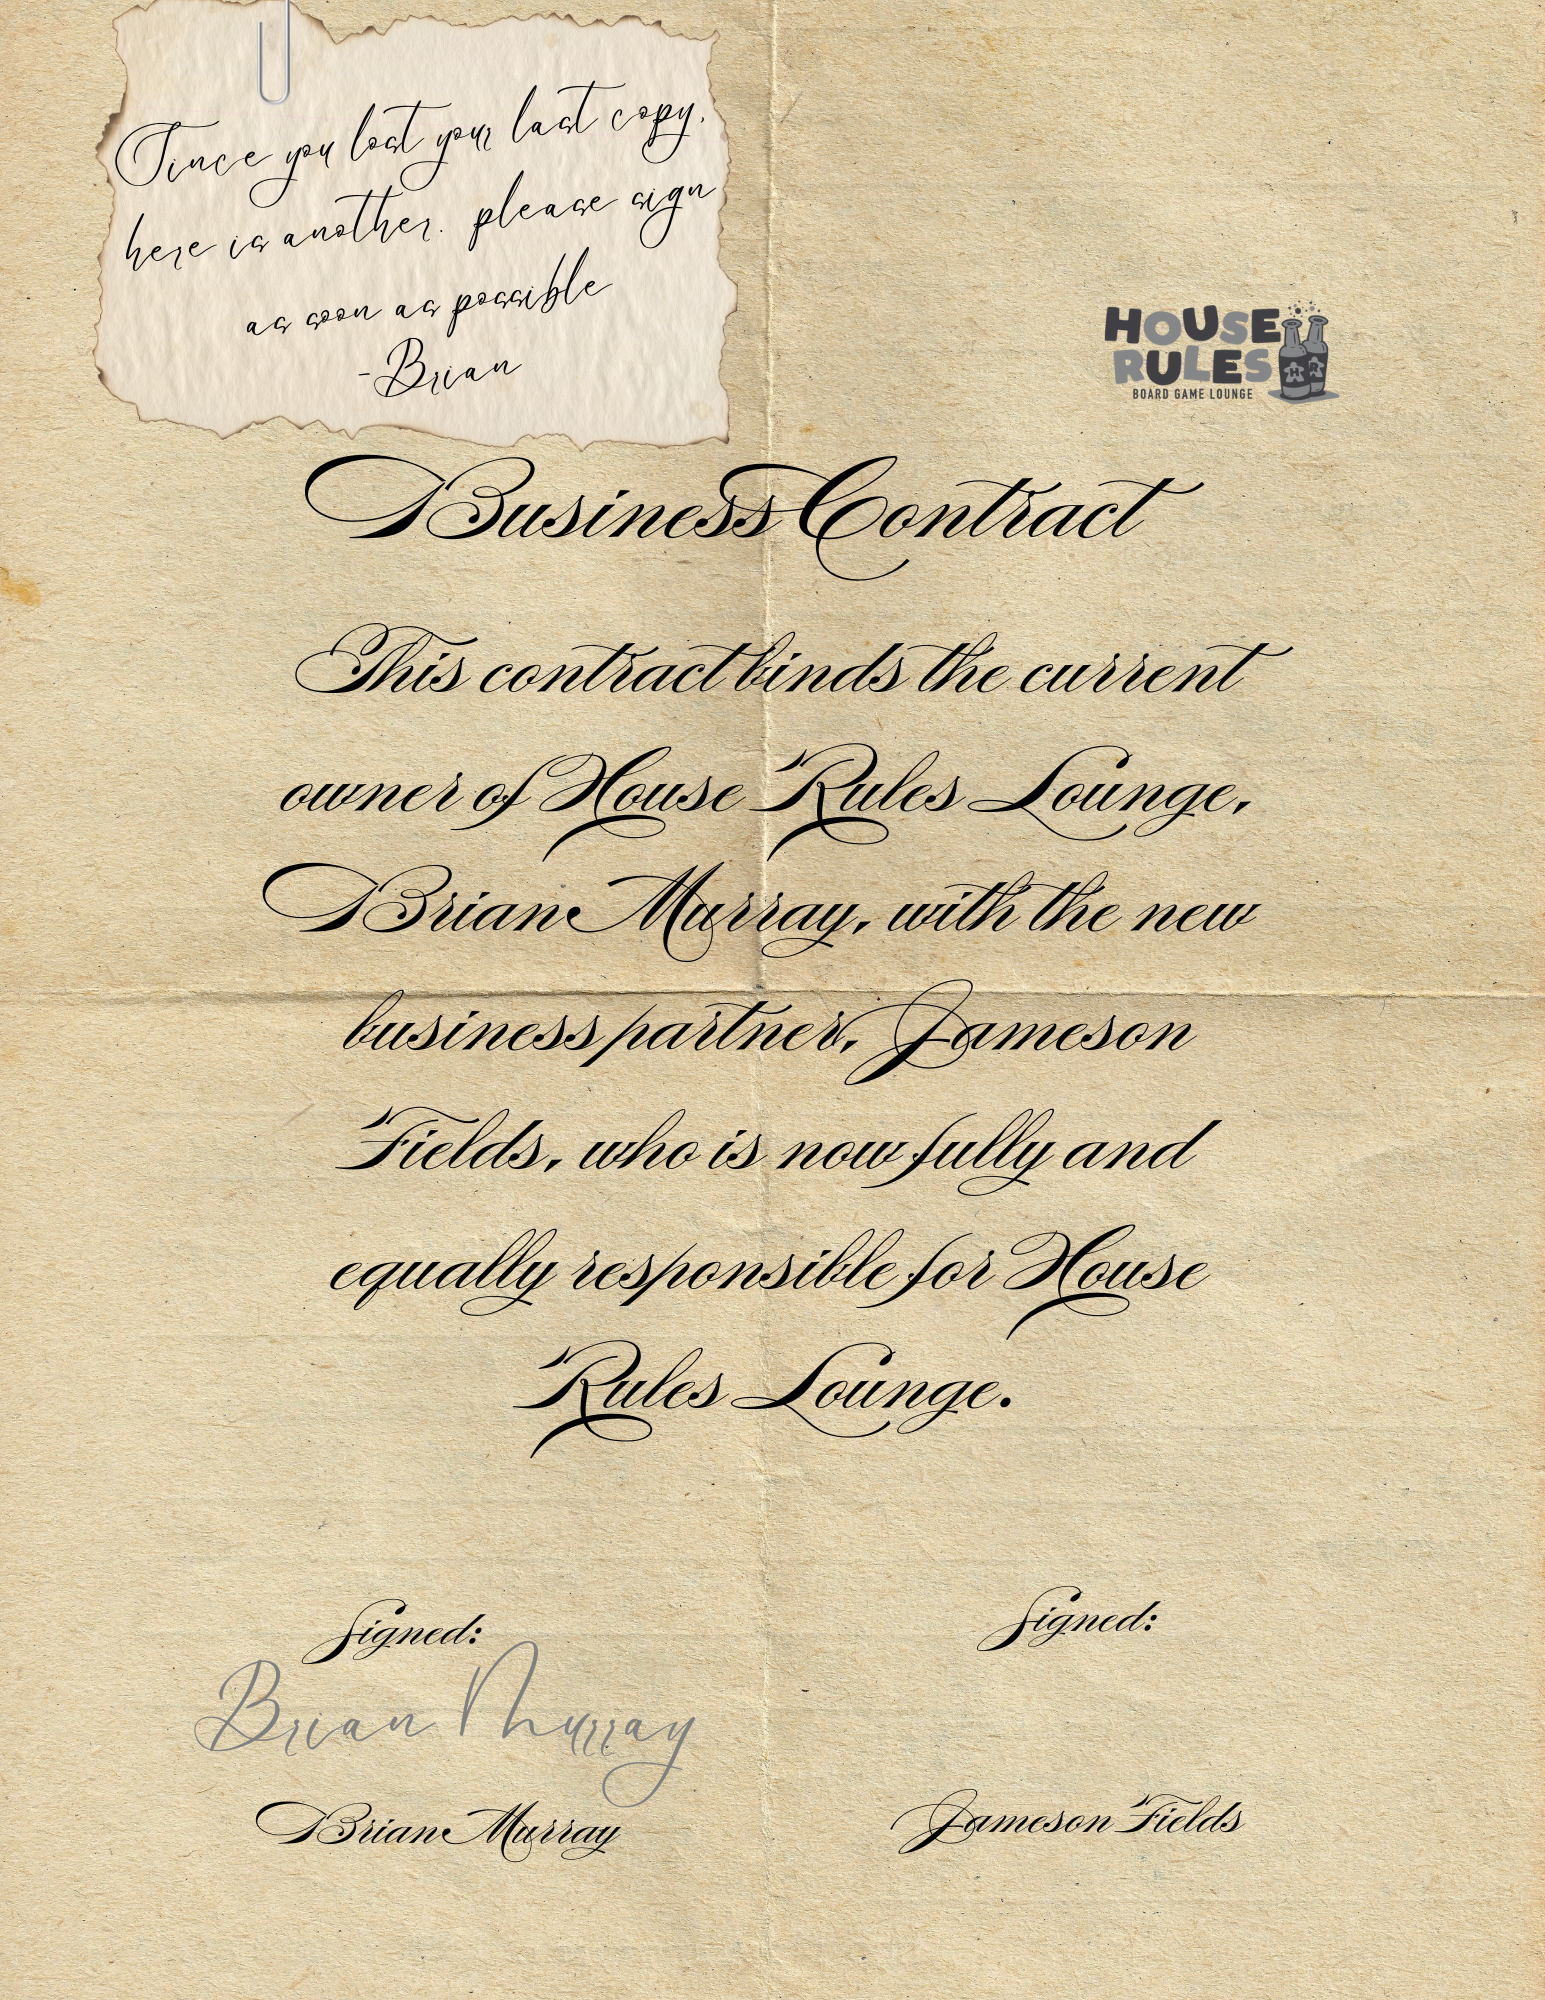 Since you lost your last copy,
here is another. please sign
as soon as possible
-Brian
HOUSE
RULES
BOARD GAME LOUNGE
H R
Business Contract
This contract binds the current
owner of House Rules Lounge,
Brian Murray, with the new
business partner, Jameson
Fields, who is now fully and
equally responsible for House
Rules Lounge.
Signed:
Signed:
Brian Murray
Brian Murray
Jameson Fields